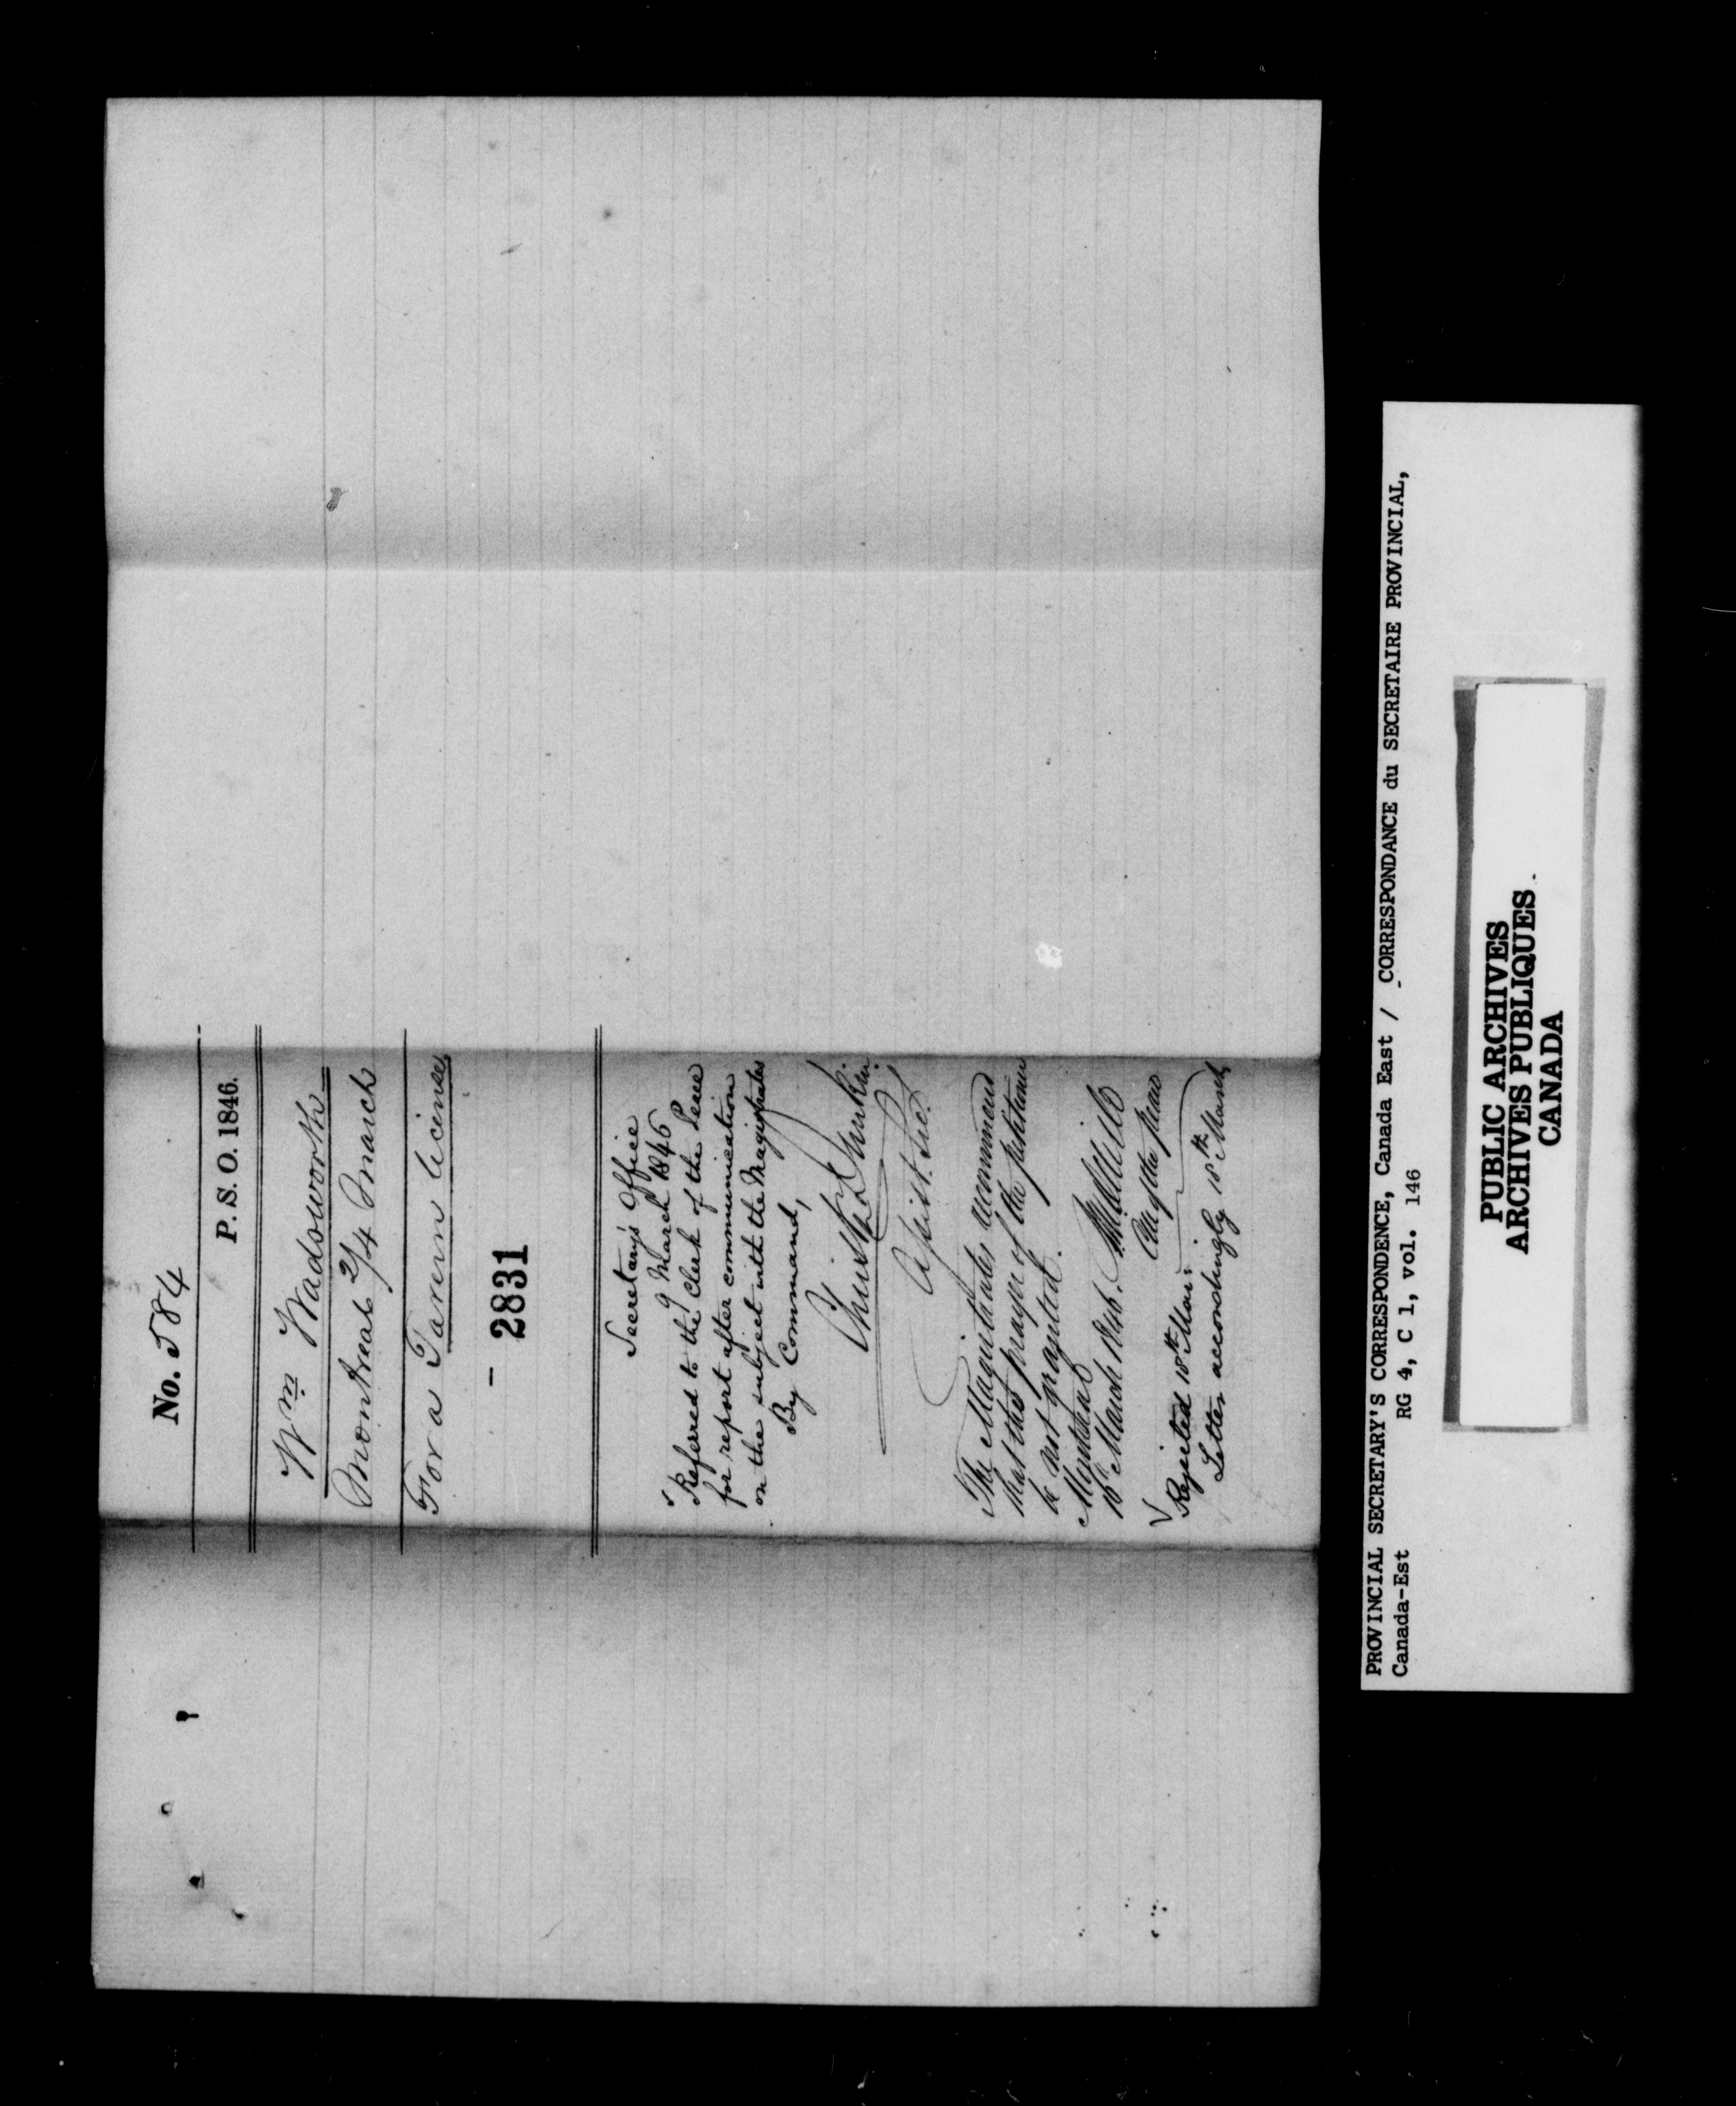 No. 584
P. S. O. 1846.
Wm Wadsworth
Montreal 2/4 March
For a Tavern license
- 2831
Secretary's Office
9 March 1846
Referred to the Clerk of the Peace
for report after communication
on the subject with the Magistrates
By Command,
Christr Dunkin
Assist. Sec.
The Magistrates recommend
that the prayer of the petitioner
be not granted.
Montreal
16th March 1846.
Rejected 18th Mar:
Letter accordingly 18th March
PROVINCIAL SECRETARY'S CORRESPONDENCE, Canada East / CORRESPONDANCE du SECRETAIRE PROVINCIAL,
Canada-Est RG 4, C 1, vol. 146
PUBLIC ARCHIVES
ARCHIVES PUBLIQUES
CANADA